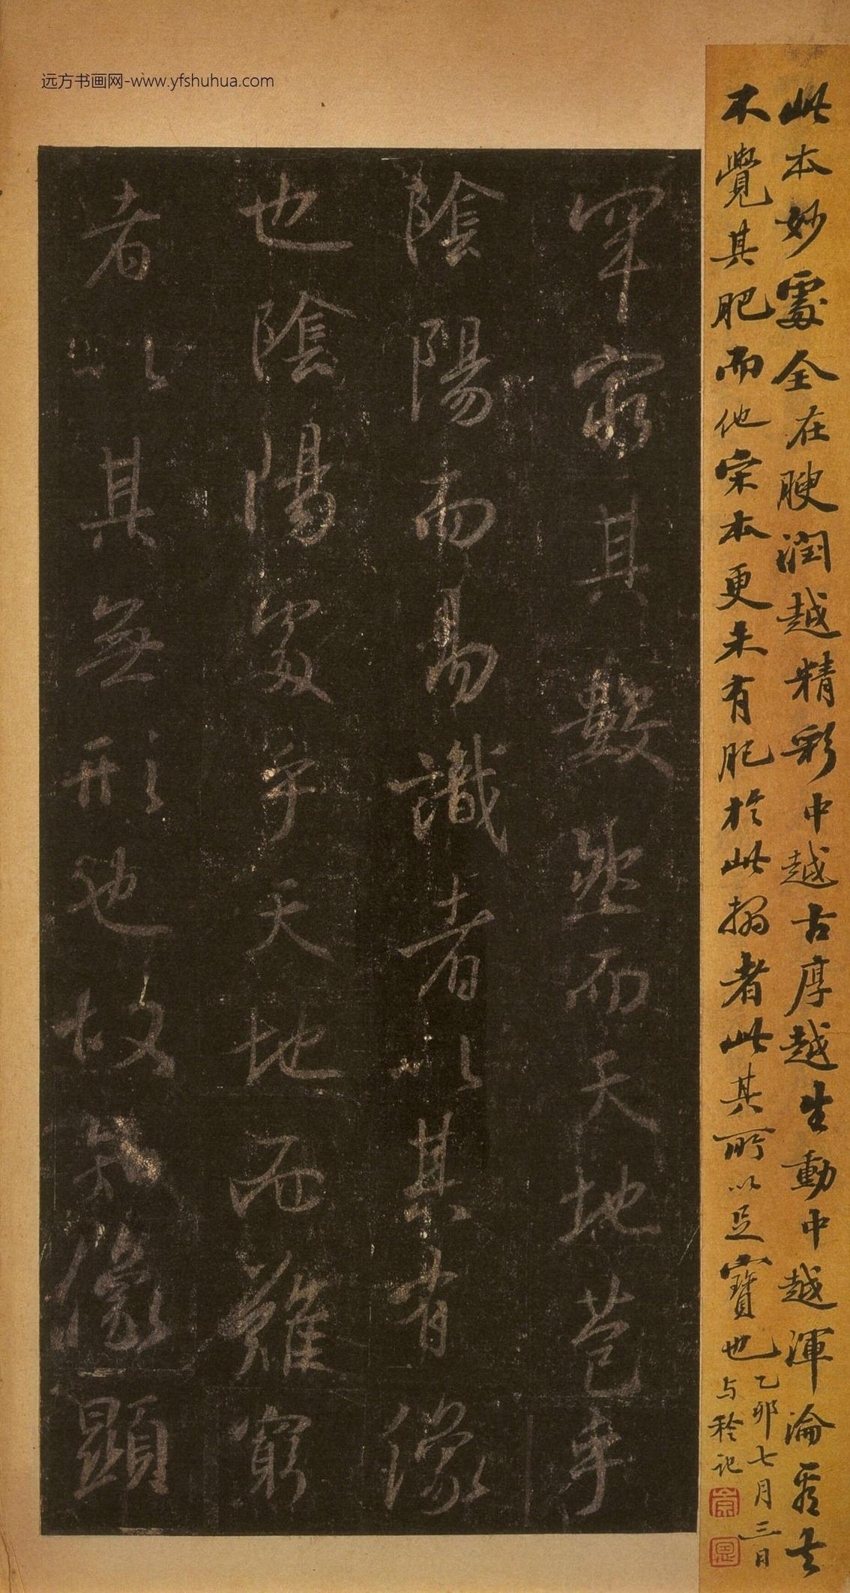 远方书画网-www.yfshuhua.com
此本妙處全在腴潤越精彩中越古厚越生動中越渾淪看去
不覺其肥而他宋本更未有肥於此搨者此其所以足寶也
乙卯七月三日
与稔記
罕窮其數然而天地苞乎
陰陽而易識者以其有像
也陰陽處乎天地而難窮
者以其無形也故知像顯